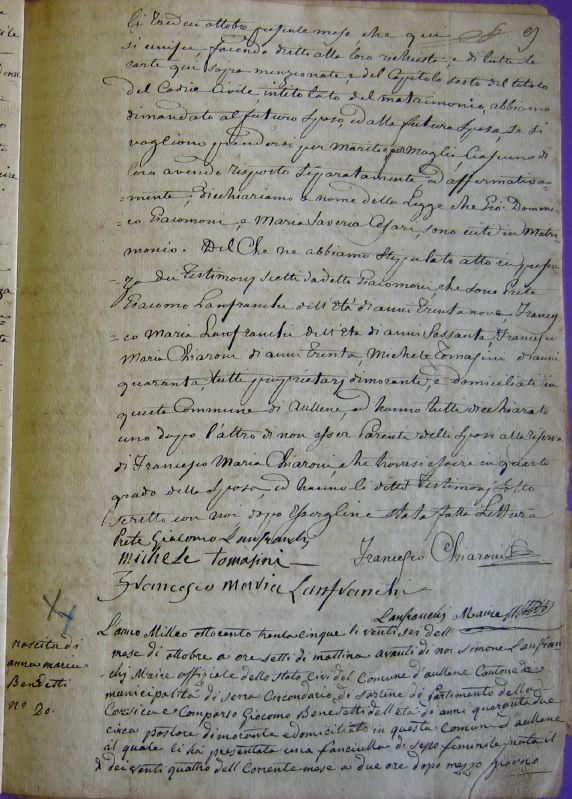 li Tredeci ottobre presente mese che qui
si unisce, facendo dritto alla loro richiesta, e di tutte le
carte qui sopra menzionate, e del Capitolo sesto del titolo
del Codice Civile, intitolato del matrimonio, abbiamo
dimandato al futuro sposo, ed alla futura sposa, se si
vogliono prendersi per Marito e per Moglie Ciascuno di
loro avendo risposto Separatamente ed affermativa-
-mente, dichiariamo a nome della Legge che Gio: Domeni-
-co Giacomoni, e Maria Saveria Cesari, sono uniti in Matri-
monio. Del Che ne abbiamo stipulato atto in presen-
za dei Testimonj scelti da detto Giacomoni, che sono Prete
Giacomo Lanfranchi dell'Età di anni Trenta nove Frances-
-co Maria Lanfranchi dell'Età di anni Sessanta, Francesco
Maria Chiaroni di anni Trenta, Michele Tomasini d'anni
quaranta, tutti proprietarj dimoranti, e domiciliati in
questa Commune di Aullene, ed hanno tutti dichiarato
uno dopo l'altro di non esser Parente delli Sposi alla riserva
di Francesco Maria Chiaroni che trovasi essere in quarto
grado dello Sposo, ed hanno li detti Testimonj sotto
scritto con noi dopo essergline stata fatta Lettura
Prete Giacomo Lanfranchi
Michele Tomasini
Francesco Chiaroni
Francesco Maria Lanfranchi
Lanfranchi Maire
nascita di
anna maria
Benedetti
n° 20.
L'anno Milleo ottocento trenta cinque li venti sei dell
mese di ottobre a ore setti di mattina avanti di noi Simone Lanfran
chi Maire officiale dello stato Civi del Comune d'aullene Cantone da
municipalità di serra Circondario di sartene di partimento della
Corsica e Comparso Giacomo Benedetti dell'età di anni quaranta due
circa pastore dimorante e domiciliato in questa Comun d'aullene
il quale li ha presentata una fanciulla di sesso feminile nata il
dei venti quattro dell Corrente mese a due ore dopo mezzo giorno